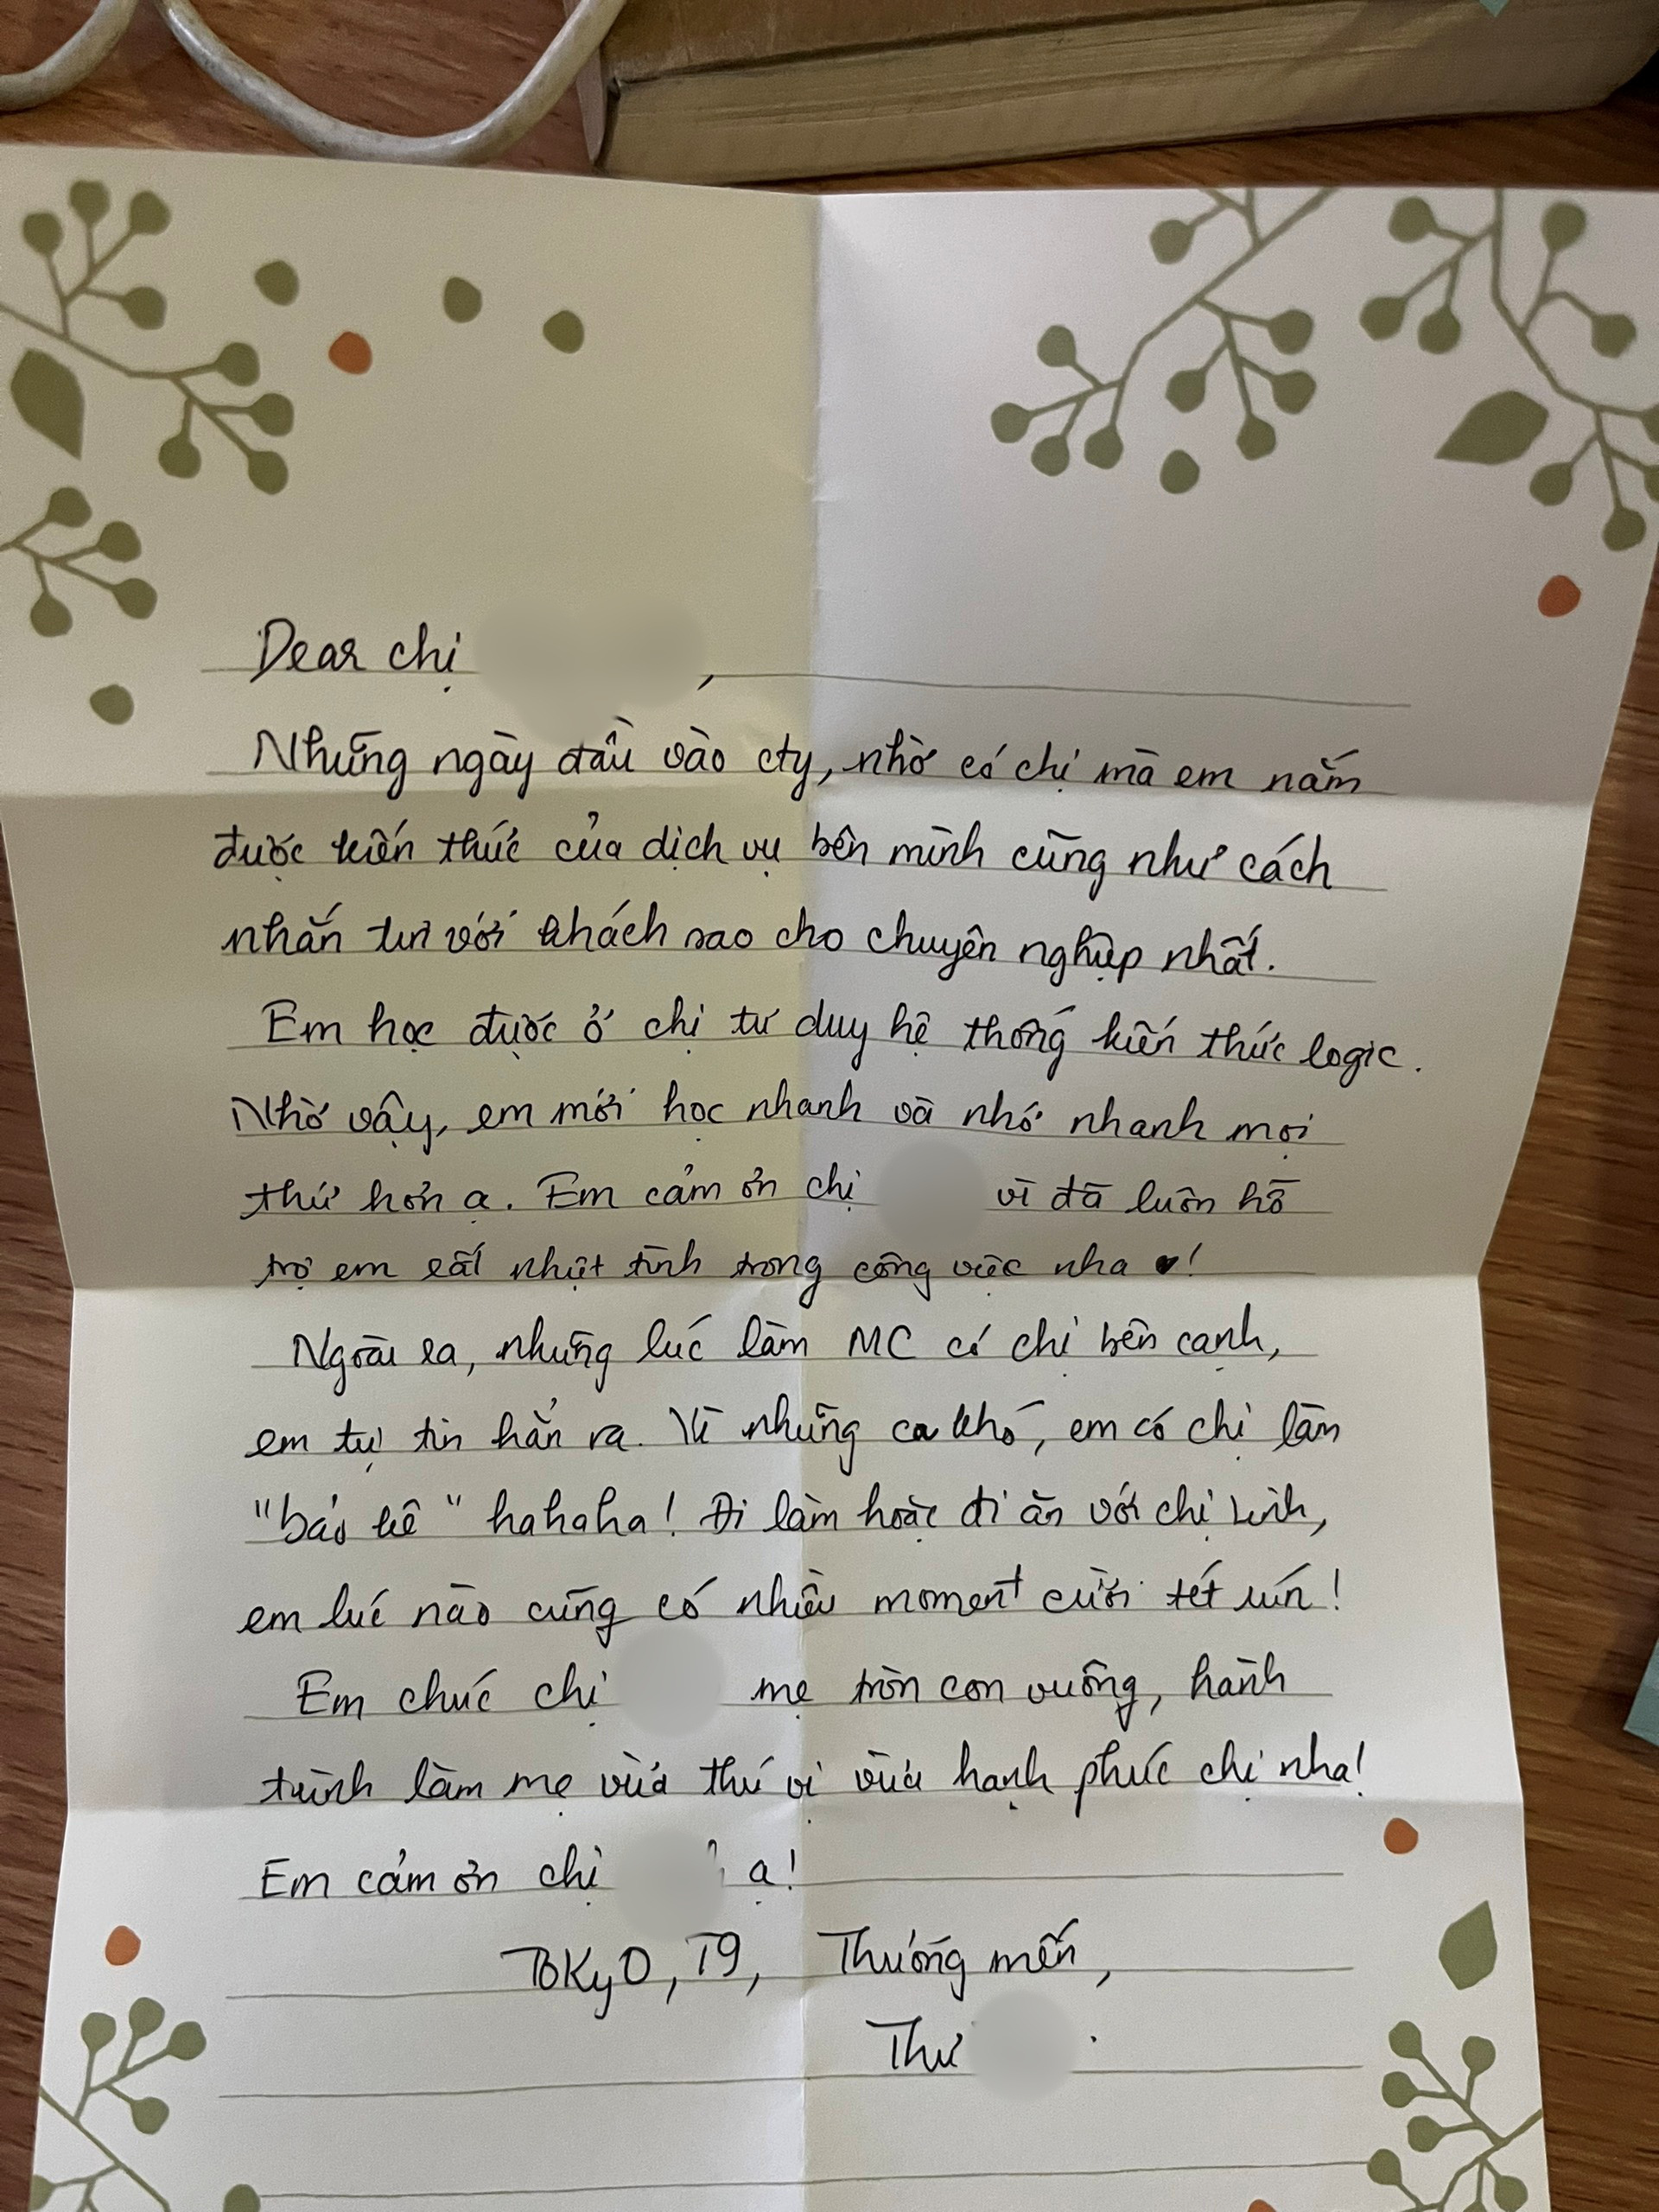 Dear chị ,
Những ngày đầu vào cty, nhờ có chị mà em nắm
được kiến thức của dịch vụ bên mình cũng như cách
nhắn tin với khách sao cho chuyên nghiệp nhất.
Em học được ở chị tư duy hệ thống kiến thức logic.
Nhờ vậy, em mới học nhanh và nhớ nhanh mọi
thứ hơn ạ. Em cảm ơn chị vì đã luôn hỗ
trợ em rất nhiệt tình trong công việc nha ♥!
Ngoài ra, những lúc làm MC có chị bên cạnh,
em tự tin hẳn ra. Vì những ca khó, em có chị làm
"bảo kê" hahaha! Đi làm hoặc đi ăn với chị Linh,
em lúc nào cũng có nhiều moment cười tét rún!
Em chúc chị mẹ tròn con vuông, hành
trình làm mẹ vừa thú vị vừa hạnh phúc chị nha!
Em cảm ơn chị ạ!
TOKyO, T9, Thương mến,
Thư